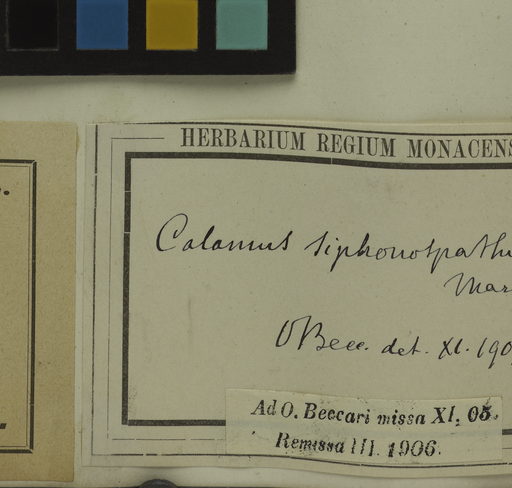 HERBARIUM REGIUM MONACENS
Calamus siphonospathu
Mar
OBecc. det. XI. 190
Ad O. Beccari missa XI. 05.
Remissa III. 1906.